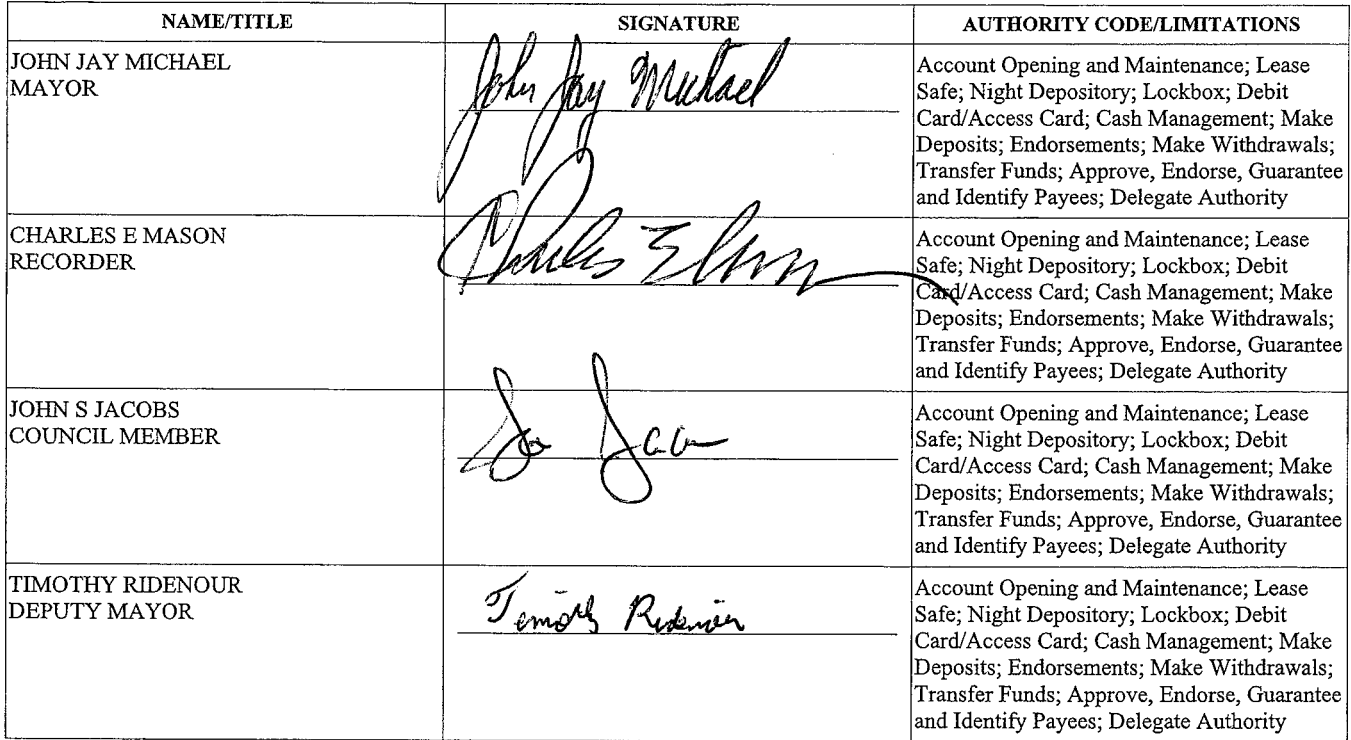 NAME/TITLE
SIGNATURE
AUTHORITY CODE/LIMITATIONS
JOHN JAY MICHAEL
MAYOR
John Jay Michael
Account Opening and Maintenance; Lease
Safe; Night Depository; Lockbox; Debit
Card/Access Card; Cash Management; Make
Deposits; Endorsements; Make Withdrawals;
Transfer Funds; Approve, Endorse, Guarantee
and Identify Payees; Delegate Authority
CHARLES E MASON
RECORDER
Charles E
Account Opening and Maintenance; Lease
Safe; Night Depository; Lockbox; Debit
Card/Access Card; Cash Management; Make
Deposits; Endorsements; Make Withdrawals;
Transfer Funds; Approve, Endorse, Guarantee
and Identify Payees; Delegate Authority
JOHN S JACOBS
COUNCIL MEMBER
Account Opening and Maintenance; Lease
Safe; Night Depository; Lockbox; Debit
Card/Access Card; Cash Management; Make
Deposits; Endorsements; Make Withdrawals;
Transfer Funds; Approve, Endorse, Guarantee
and Identify Payees; Delegate Authority
TIMOTHY RIDENOUR
DEPUTY MAYOR
Timothy Ridenour
Account Opening and Maintenance; Lease
Safe; Night Depository; Lockbox; Debit
Card/Access Card; Cash Management; Make
Deposits; Endorsements; Make Withdrawals;
Transfer Funds; Approve, Endorse, Guarantee
and Identify Payees; Delegate Authority